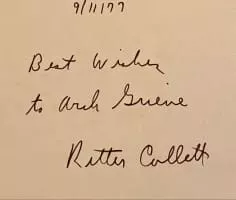 9/11/77
Best Wishes
to Arch Grieve
Ritter Collett